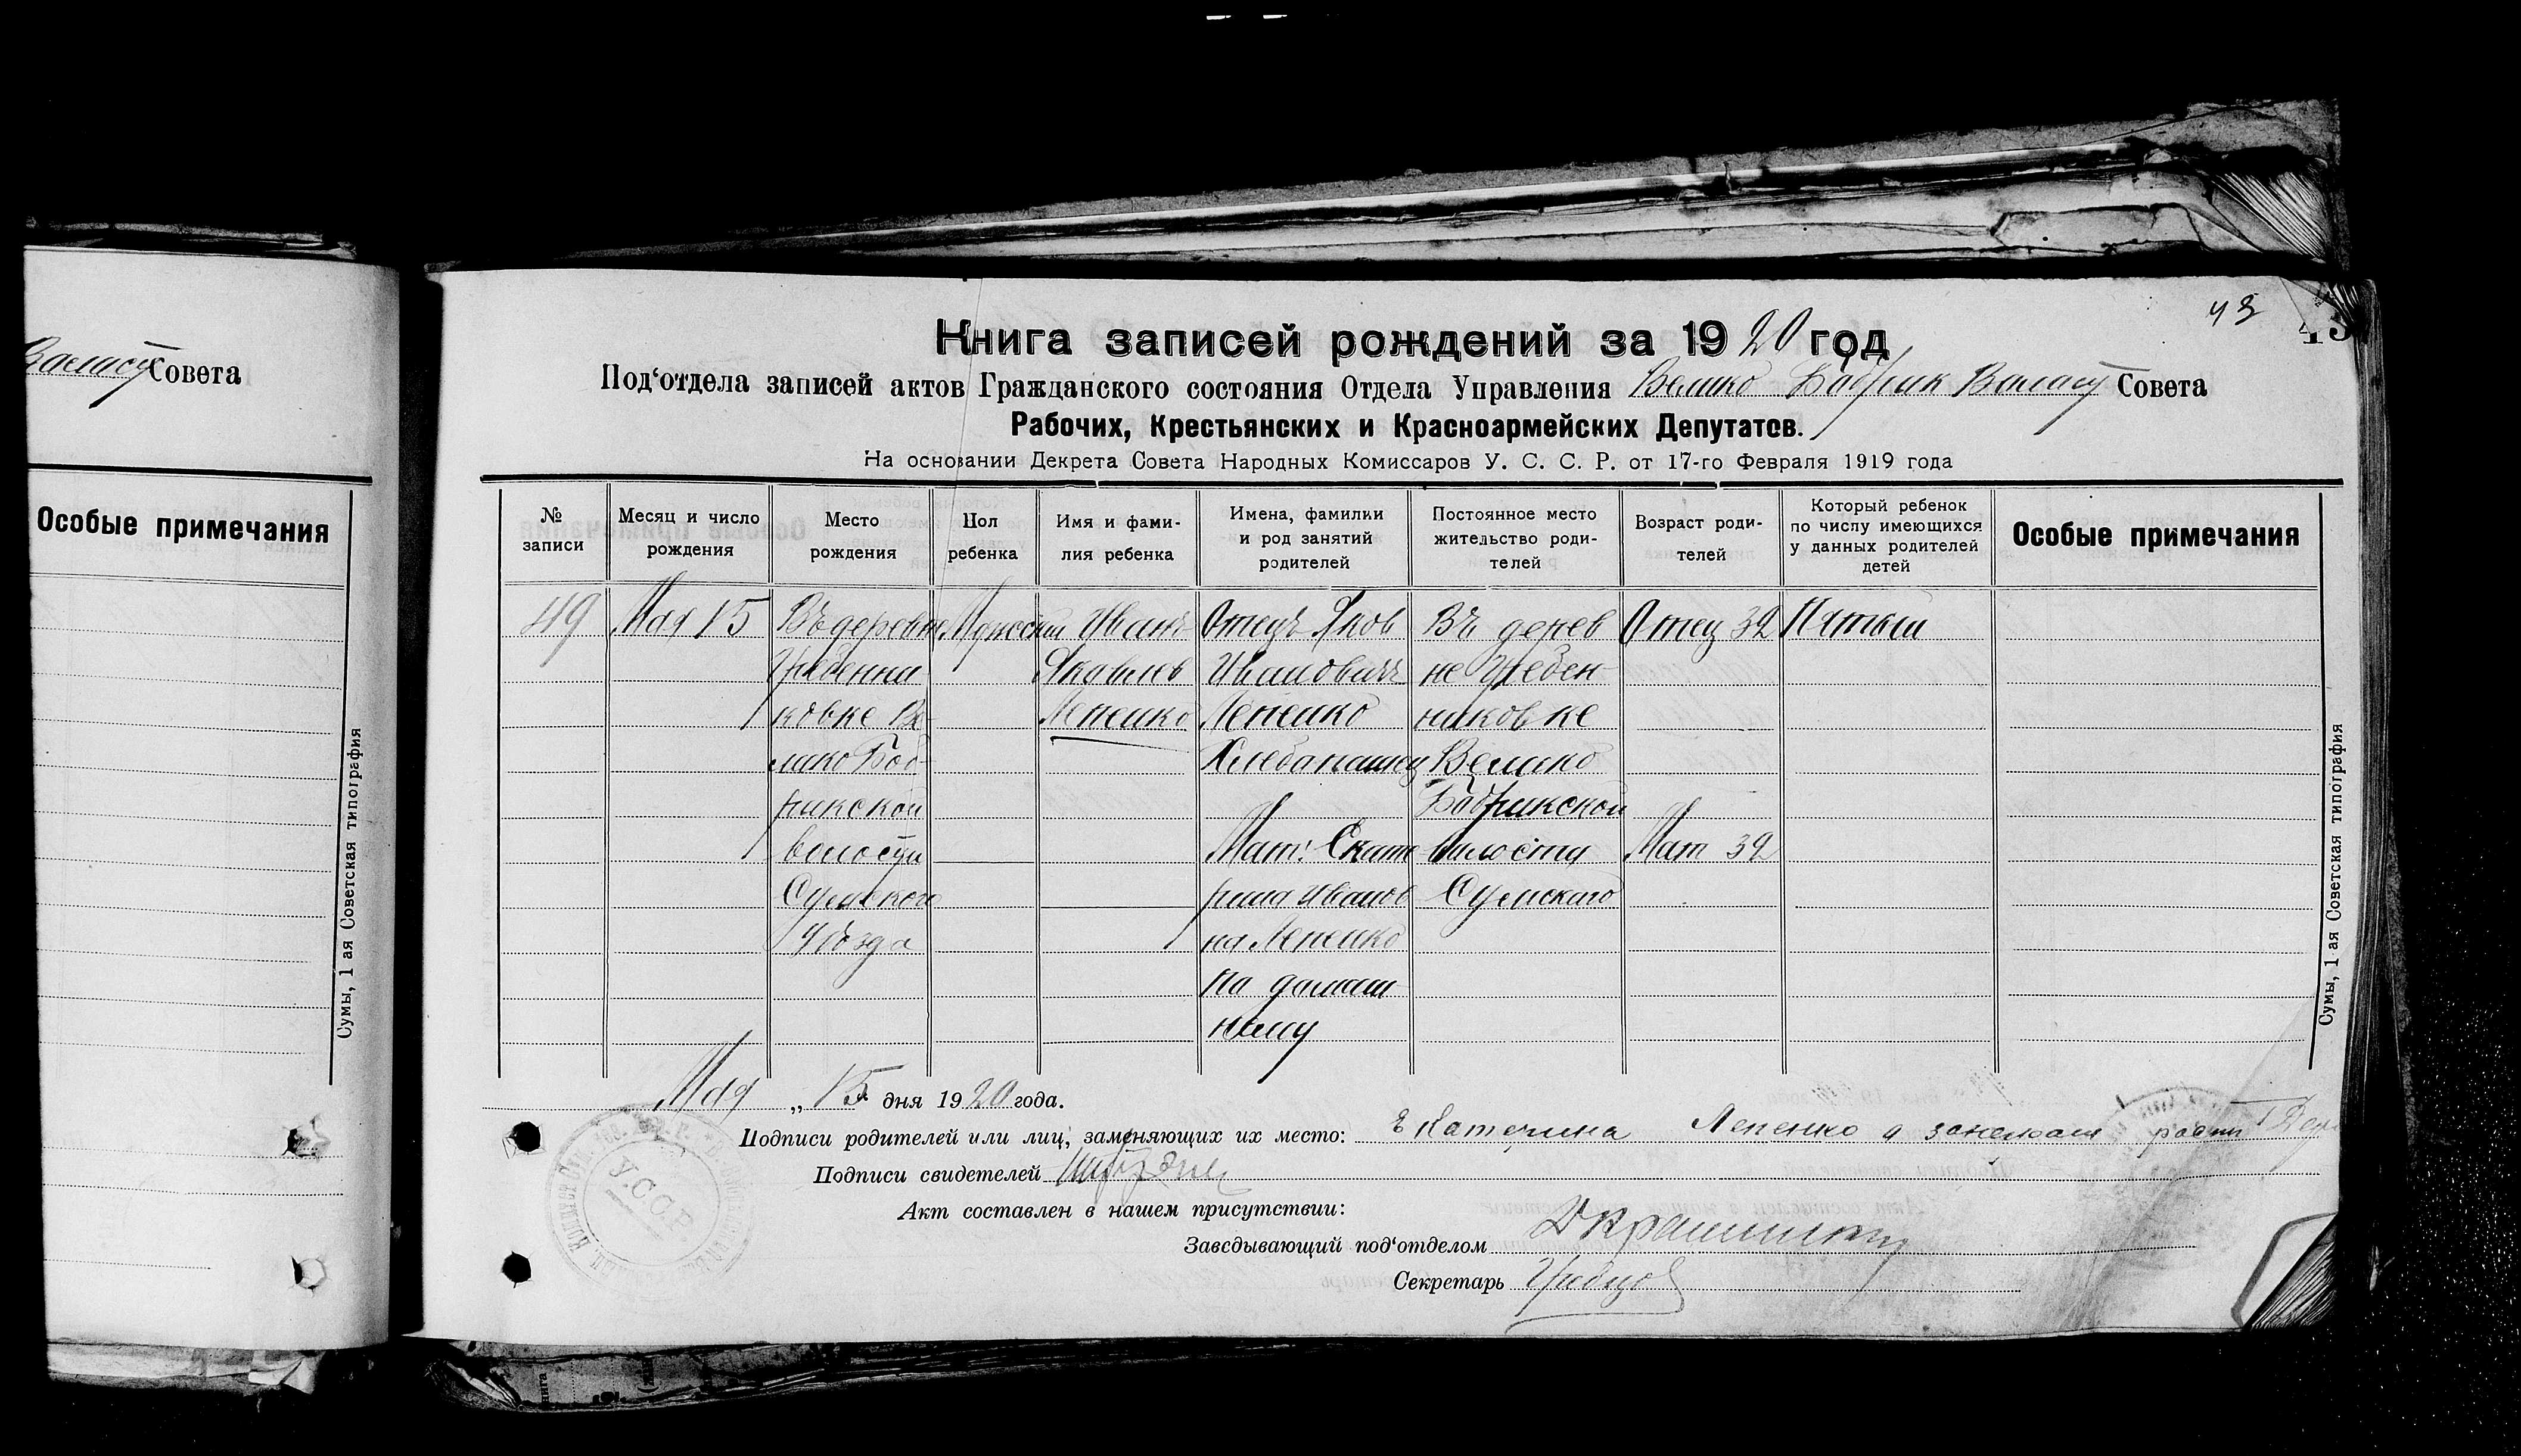 Совета
Особые примечания
Сумы, 1 ая Советская типография
43
Книга записей рождений за 1920 год
Под‘отдела записей актов Гражданского состояния Отдела Управления Велико Бобрик Воласт Совета
Рабочих, Крестьянских и Красноармейских Депутатов.
На основании Декрета Совета Народных Комиссаров У. С. С. Р. от 17-го Февраля 1919 года
№ записи
Месяц и число рождения
Место рождения
Пол ребенка
Имя и фами-
лия ребенка
Имена, фамилии
и род занятий
родителей
Постоянное место
жительство роди-
телей
Возраст роди-
телей
Который ребенок
по числу имеющихся
у данных родителей
детей
Особые примечания
49
Мая 15
Въ деревне
Гребенни
ковке Ве
лико Боб
рикской
волости
Сумского
Уѣзда
Мужской
Иванъ
Яковлев
Лепенко
Отецъ Яков
Ивановичъ
Лепенко
Хлебопашец
Мать Екате
рина Иванов
на Лепенко
по домаш
нему
Въ дерев
не Гребен
никовке
Велико
Бобрикской
волости
Сумскаго
Отец 32
Мат 32
Пятый
Мая „ 15 дня 1920 года.
Подписи родителей или лиц, заменяющих их место: Екатерина Лепенко а
Подписи свидетелей
Акт составлен в нашем присутствии:
Заведывающий под‘отделом
Секретарь
У.С.С.Р.
Сумы, 1-ая Советская типография